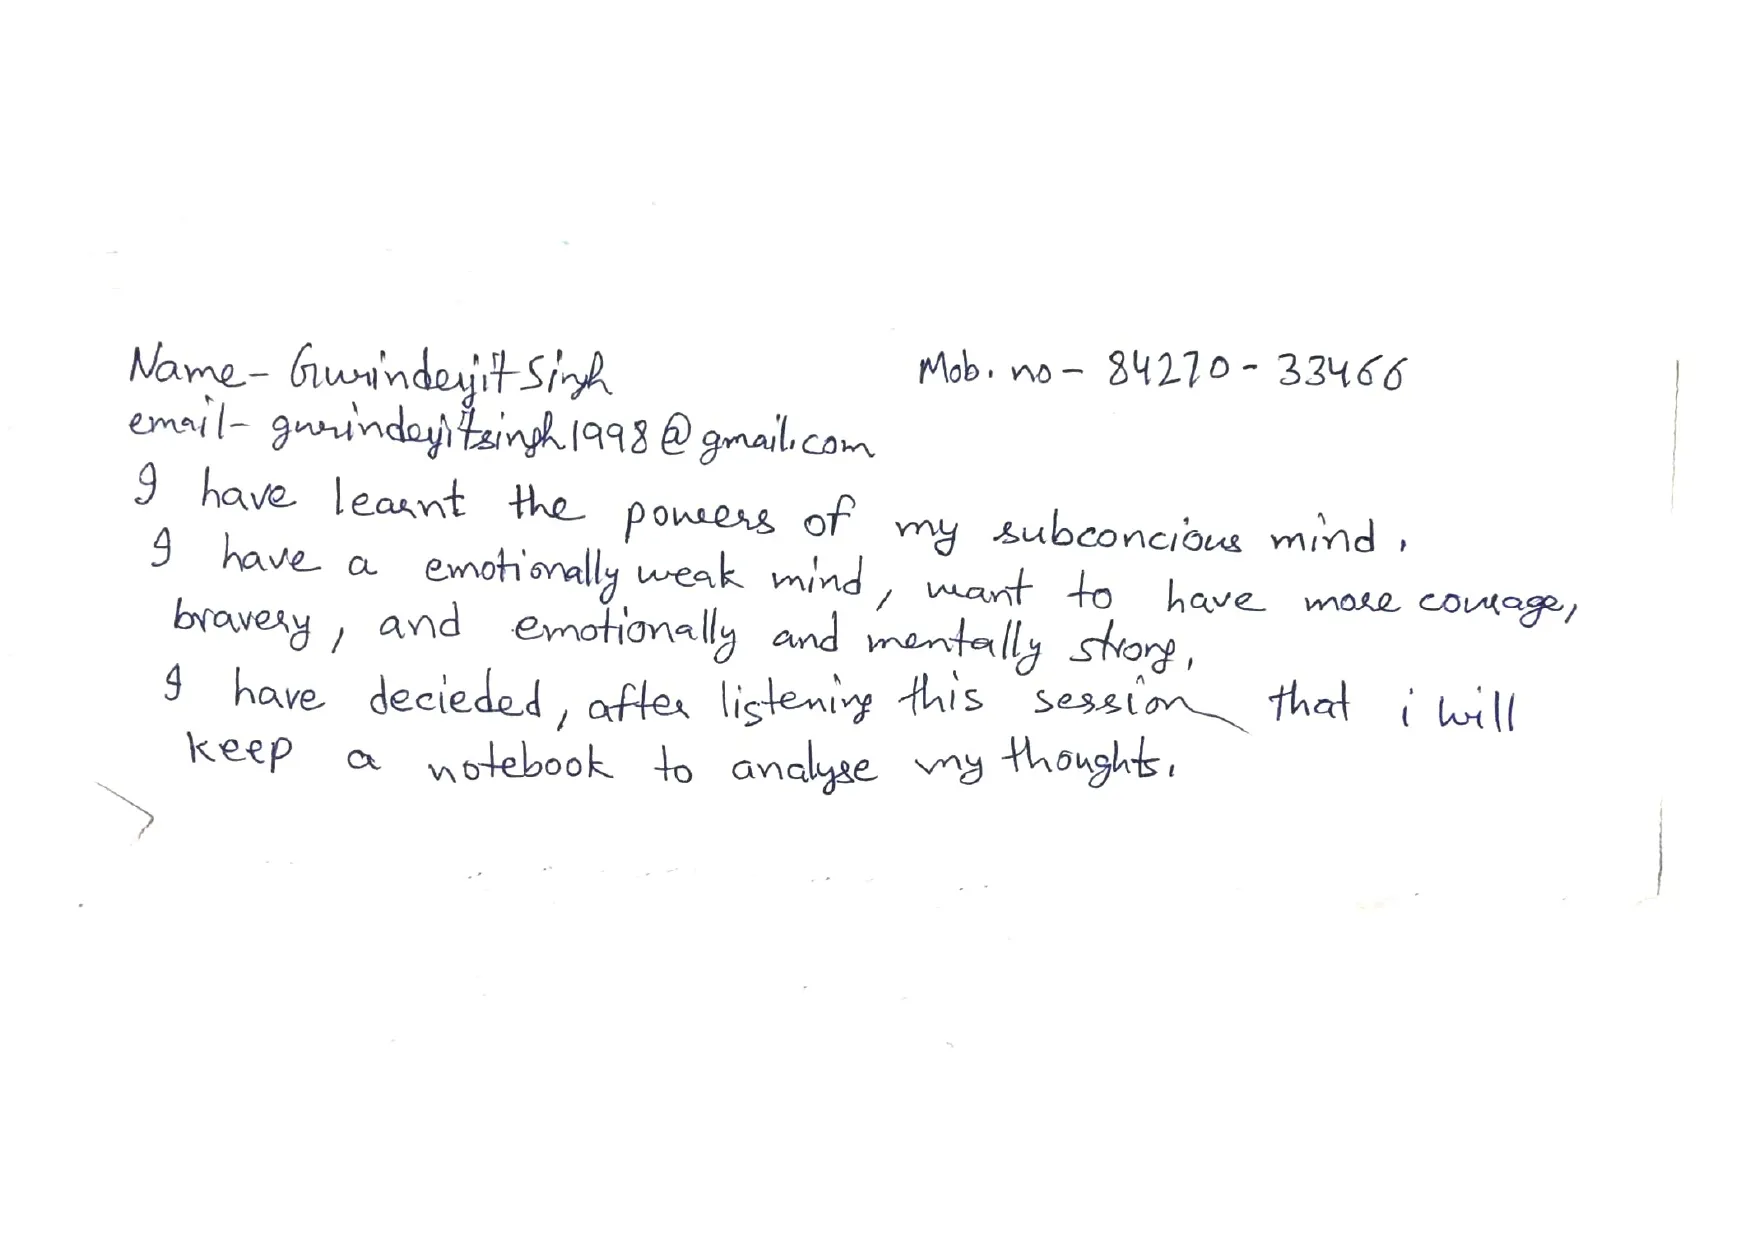 Name- Gurinderjit Singh Mob. no - 84270-33466
email- gurinderjitsingh1998@gmail.com
I have learnt the powers of my subconcious mind.
I have a emotionally weak mind, want to have more courage,
bravery, and emotionally and mentally strong.
I have decieded, after listening this session that i will
keep a notebook to analyse my thoughts.